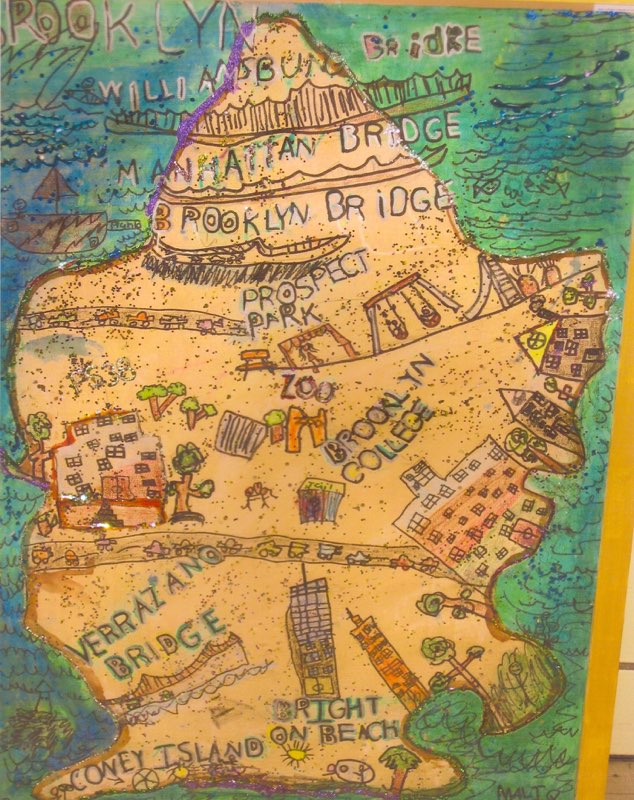 BROOKLYN
WILLIAMSBURG BRidgE
MANHATTAN BRIDGE
BROOKLYN BRiDGE
PROSPECT
PARK
ZOO
BROOKLYN
COLLEGE
VERRAZIANO
BRIDGE
BRIGHT
ON BEACH
CONEY ISLAND